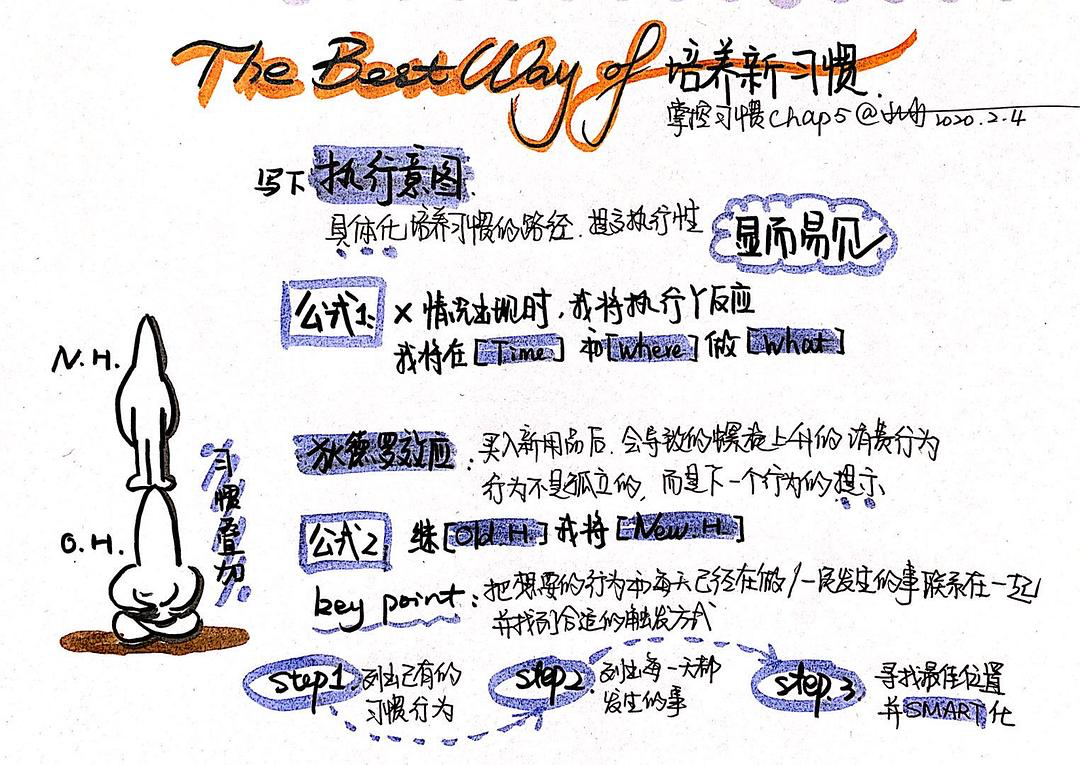 The Best Way of 培养新习惯.
掌控习惯 Chap5 @ 2020.2.4
写下 执行意图.
具体化培养习惯的路径. 提高执行性
显而易见
公式1: X 情况出现时, 我将执行Y反应
我将在 [Time] 和 [Where] 做 [What]
N.H.
O.H.
习惯叠加
狄德罗效应: 买入新用品后. 会导致的螺旋上升的消费行为
行为不是孤立的, 而是下一个行为的提示
公式2 继 [Old.H.] 我将 [New.H.]
key point: 把想要的行为和每天已经在做/一定发生的事联系在一起
并找到合适的触发方式
step1. 列出已有的
习惯行为
step2. 列出每一天都
发生的事
step.3. 寻找最佳位置
并SMART化